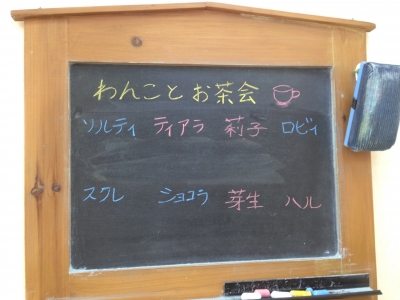 わんことお茶会
ソルティ ティアラ 莉子 ロビィ
スクレ ショコラ 芽生 ハル